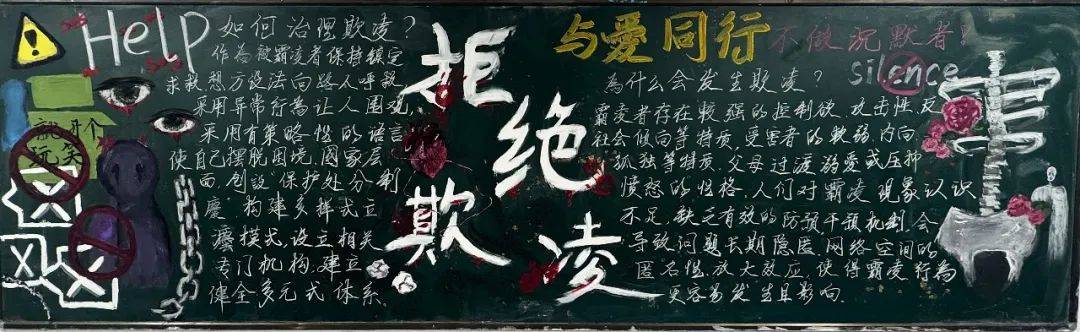 Help
如何治理欺凌?
作為被霸凌者保持鎮定
求救想方设法向路人呼救
采用异常行為让人围观
采用有策略性的语言
使自己摆脱困境,国家层
面,创设"保护处分制
度"构建多样式立
法模式,设立相关
专门机构,建立
健全多元式体系.
就开个
玩笑
拒绝欺凌
与愛同行
不做沉默者!
silence
為什么会发生欺凌?
霸凌者存在较强的控制欲,攻击性,反
社会倾向等特质,受害者的软弱内向,
孤独等特质,父母过渡溺愛或压抑
愤怒的性格,人们对霸凌现象认识
不足,缺乏有效的防预干预机制,会
导致问题长期隐匿,网络空间的
匿名性,放大效应,使得霸凌行為
更容易发生且影响.